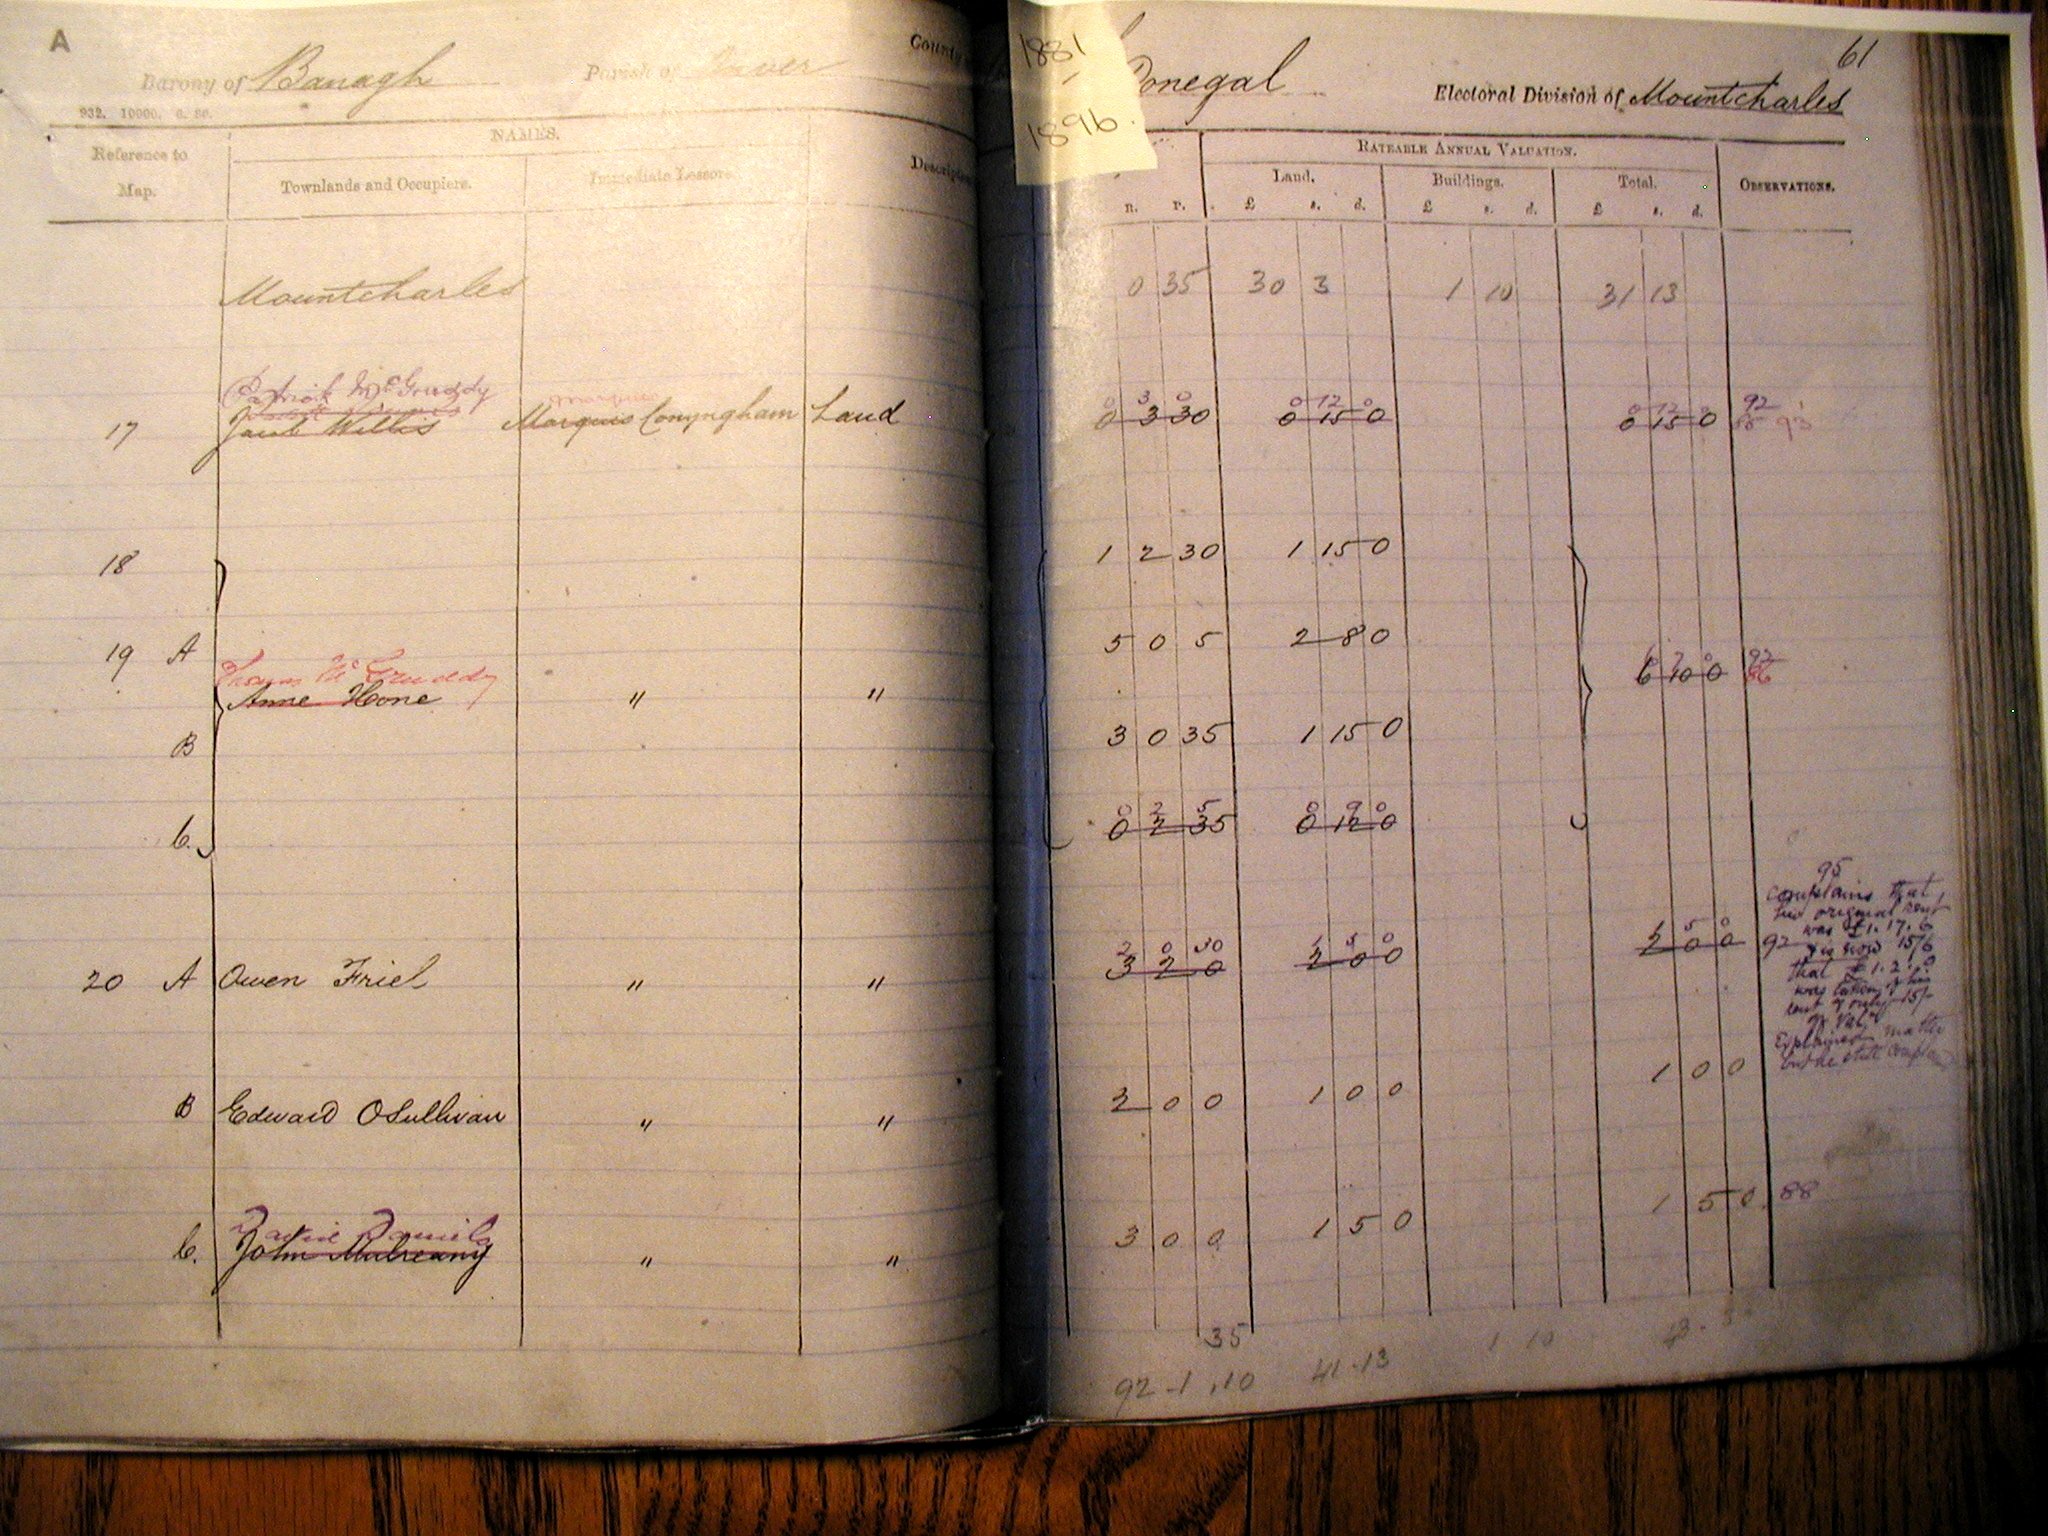 A
Barony of Banagh Parish of Inver County
1881
1896
Donegal Electoral Division of Mountcharles
61
932. 10000.
Reference to Map.
NAMES.
Townlands and Occupiers.
Immediate Lessors.
Description
A. R. P.
RATEABLE ANNUAL VALUATION.
Land. Buildings. Total.
£ s. d. £ s. d. £ s. d.
OBSERVATIONS.
Mountcharles 0 35 30 3 1 10 31 13
Patrick McGruddy Marquis 0 3 0 0 12 0 0 12 0 92
17 Jacob Willis Marquis Conyngham Land 0 3 30 0 15 0 0 15 0 93
18 1 2 30 1 15 0
19 A 5 0 5 2 8 0
Thomas McGruddy 6 7 0 92
Anne Hone " " 6 10 0 86
B 3 0 35 1 15 0
0 2 5 0 9 0
C. 0 2 35 0 12 0
2 0 30 1 5 0 1 5 0
20 A Owen Friel " " 3 2 0 2 0 0 2 0 0 92
95
complains that
his original rent
was £1.17.6
& is now 15/6
that £1.2.0
was taken of his
rent & only 15/-
of Val.
Explained matter
but he still complains
B Edward OSullivan " " 2 0 0 1 0 0 1 0 0
C. John Mulreany " " 3 0 0 1 5 0 1 5 0 88
35
92 - 1 . 10 41 - 13 1 10